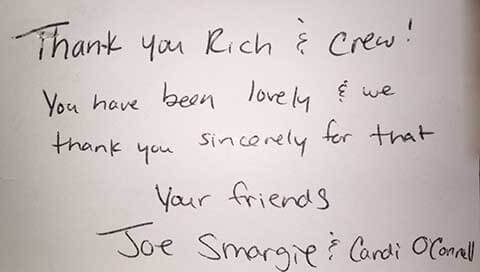 Thank you Rich & Crew!
You have been lovely & we
thank you sincerely for that
Your friends
Joe Smargie & Candi O'Connell